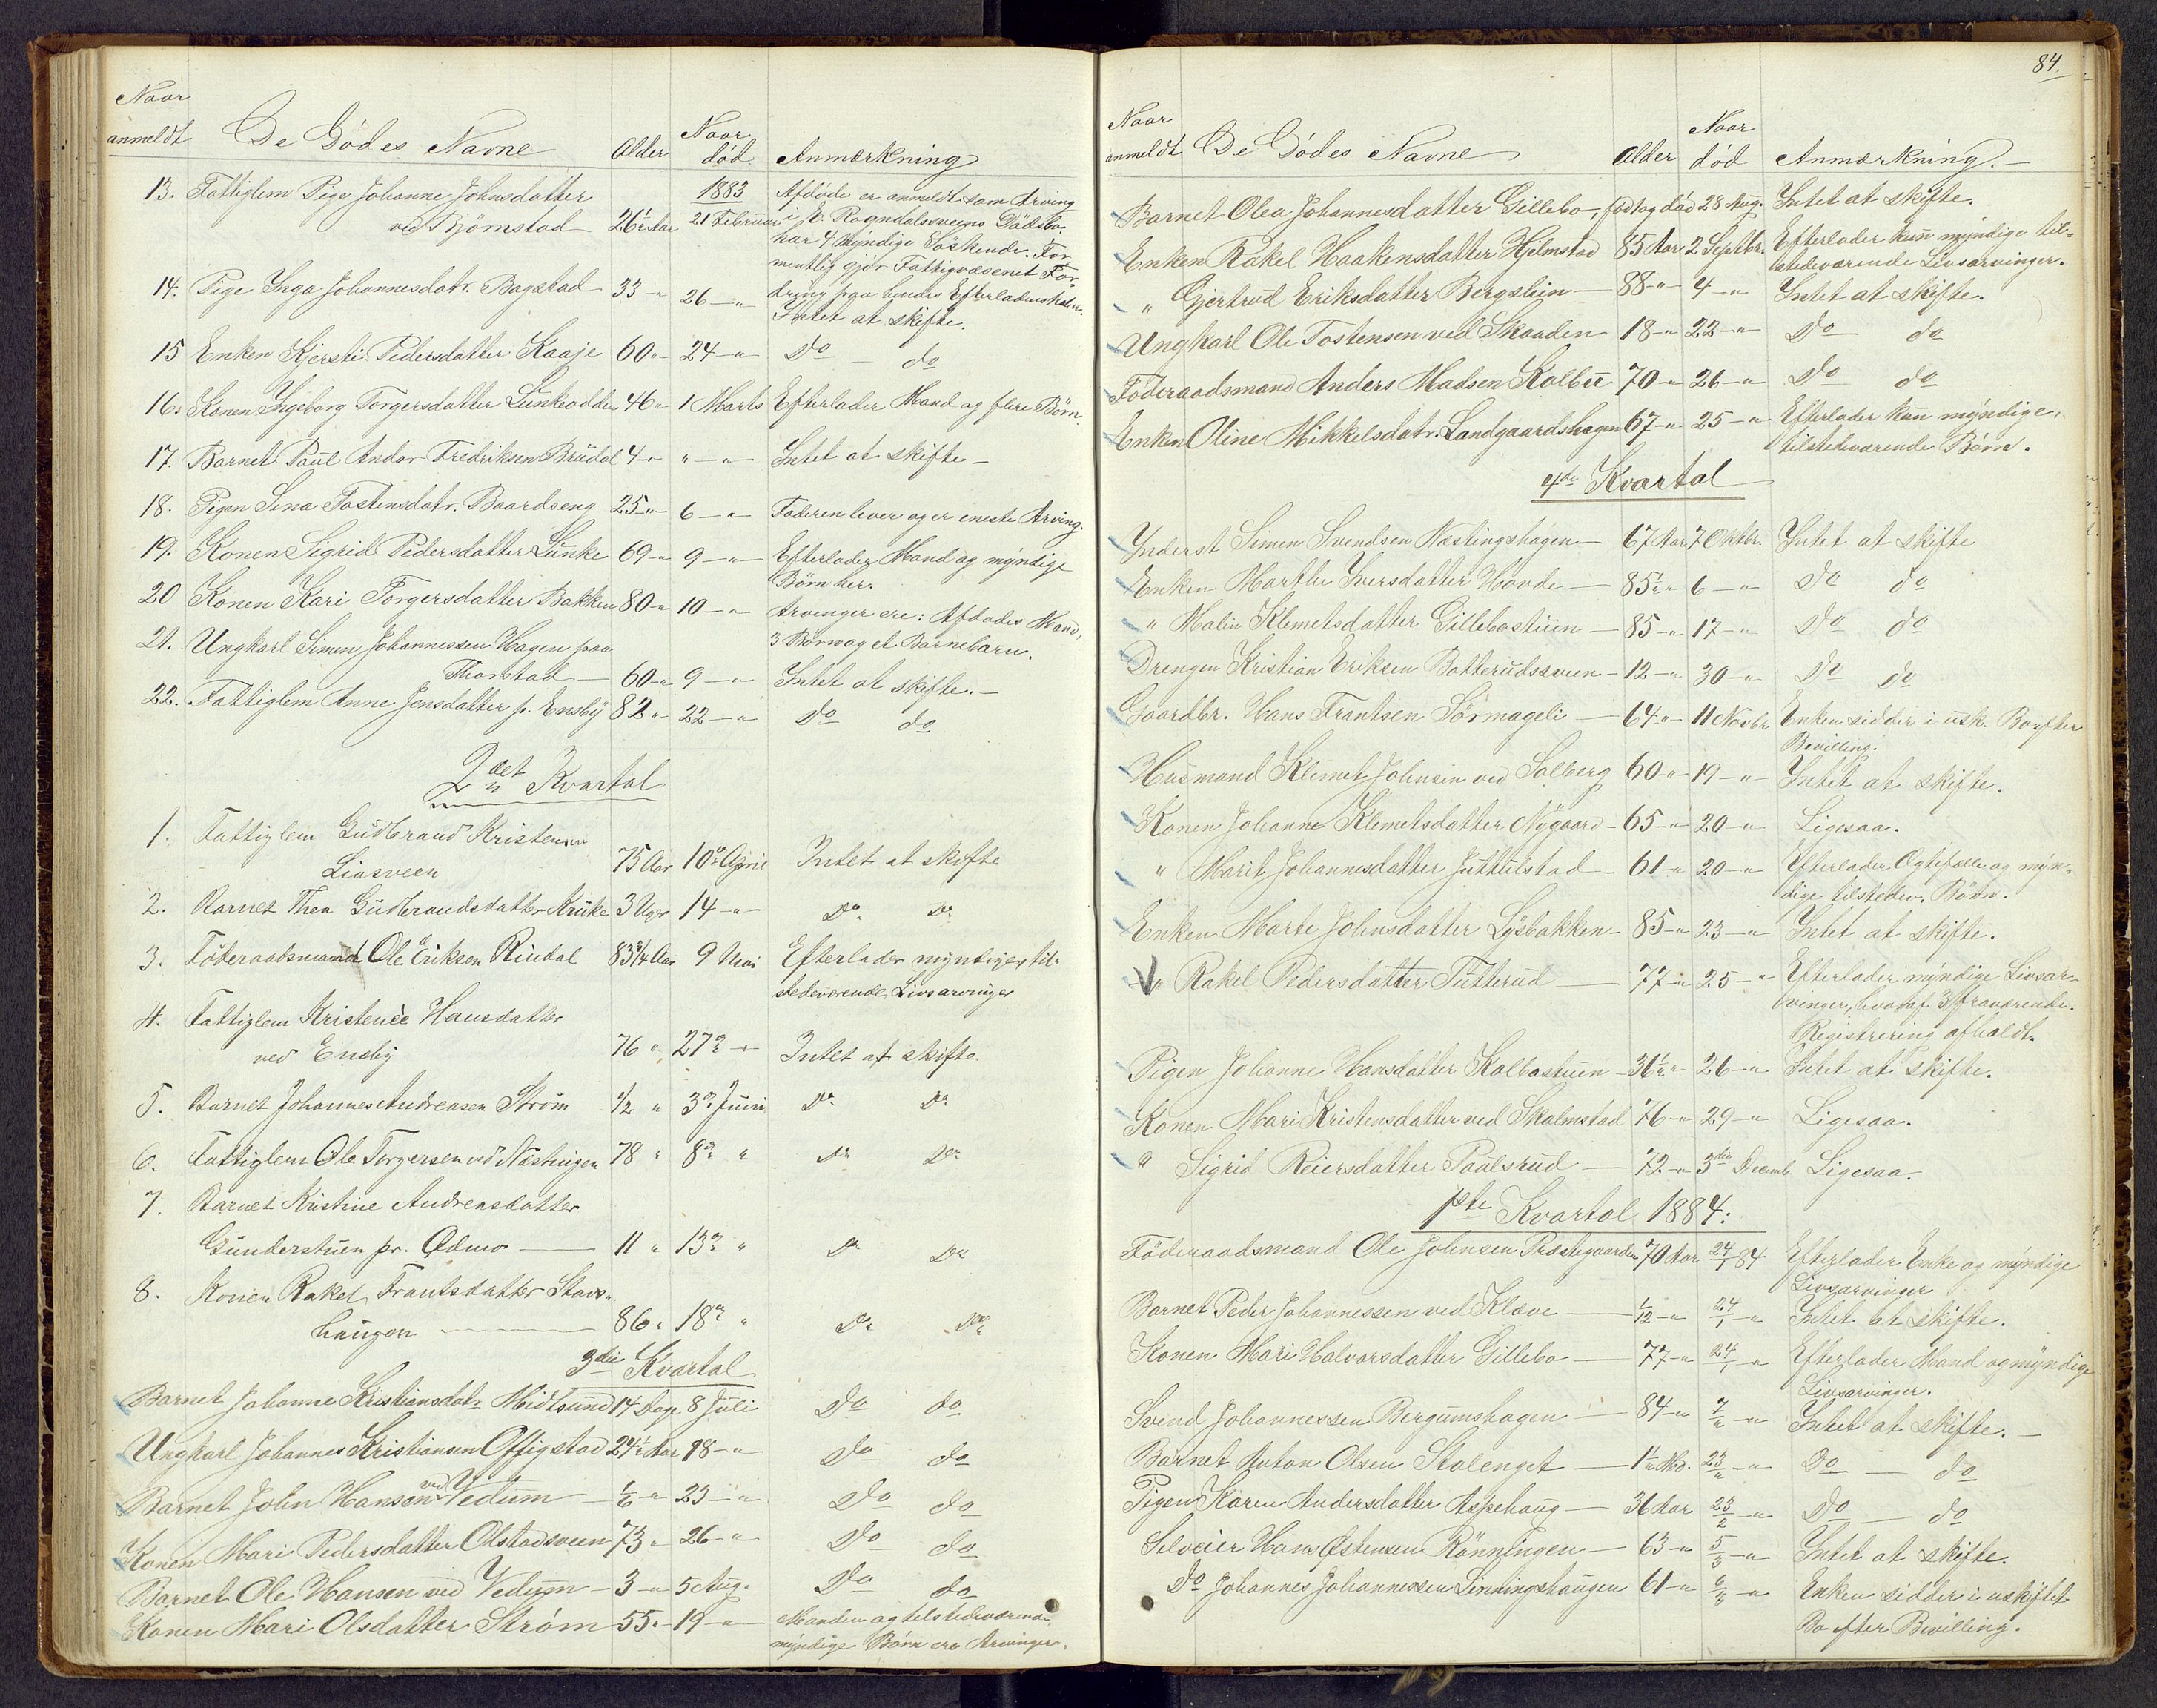 Naar
anmeldt De Dödes Navne Alder Naar död Anmærkning
13. Fattiglem Pige Johanne Johnsdatter 1883 Afdöde er anmeldt som Arving
ved Björnstad 26½ Aar 21 Februar i E. Rogndalsveens Dödsbo.
har 4 Myndige Söskende. For-
mentlig gjör Fattigvæsenet For-
14. Pige Inga Johannesdatr. Bagstad 33 " 26 - " dring paa hendes Efterladenskaber.
Intet at skifte.
15 Enken Kjersti Pedersdatter Kaaje 60 " 24 - " Do - do
16. Konen Ingeborg Torgersdatter Lunkeodden 46 " 1 Marts Efterlader Mand og flere Börn.
17. Barnet Paul Andor Fredriksen Brudal 4 - " " - " Intet at skifte -
18. Pigen Sina Tostensdatr. Baardseng 25 - " 6 - " Faderen lever og er eneste Arving.
19. Konen Sigrid Pedersdatter Lunke 69 - " 9 - " Efterlader Mand og myndige
Börn her.
20 Konen Kari Torgersdatter Bakken 80 - " 10 - " Arvinger ere: Afdödes Mand,
3 Börn og et Barnebarn.
21. Ungkarl Simen Johannessen Hagen paa
Thorstad - 60 - " 9 - " Intet at skifte. -
22. Fattiglem Anne Jensdatter p. Ensby 82 " 22 - " Do do
2det Kvartal
1. Fattiglem Gudbrand Kristensen
Liesveen 75 Aar 10de April Intet at skifte
2. Barnet Thea Gudbrandsdatter Kruke 3 Uger 14 - " Do Do
3. Föderaadsmand Ole Eriksen Rindal 83 3/4 Aar 9 Mai Efterlader myndige, til-
stedeværende Livsarvinger
4. Fattiglem Kristence Hansdatter
ved Ensby 76 " 27de - " Intet at skifte.
5. Barnet Johannes Andreasen Ström ½ " 3de Juni Do Do
6. Fattiglem Ole Torgersen ved Næstingen 78 " 8de " Do Do
7. Barnet Kristine Andreasdatter
Gunderstuen pr. Ödmo - 11 " 13de " Do Do
8. Konen Rakel Frantsdatter Stavs-
haugen - 86 " 18de " Do Do
3die Kvartal
Barnet Johanne Kristiansdatr Midtsund 14 Dage 8 Juli Do do
Ungkarl Johannes Kristiansen Offigstad 24½ Aar 18 - " Do do
Barnet John Hansen ved Vedum - 1/6 - " 23 - " Do do
Konen Mari Pedersdatter Olstadsveen 73 " 26 " Do do
Barnet Ole Hansen ved Vedum - 3 - " 5 Aug. Do do
Konen Mari Olsdatter Ström - 55 " 19 - " Manden og tilstedeværende
myndige Börn ere Arvinger.
84.
Naar
anmeldt De Dödes Navne Alder Naar död Anmærkning. -
Barnet Olea Johannesdatter Gillebo, föd og död 28 Aug. Intet at skifte.
Enken Rakel Haakensdatter Hjelmstad 85 Aar 2 Septbr. Efterlader kun myndige til-
stedeværende Livsarvinger.
" Gjertrud Eriksdatter Bergslien - 88 - " 4 - " Intet at skifte.
Ungkarl Ole Tostensen ved Skaaden 18 - " 22 - " Do do
Föderaadsmand Anders Madsen Kolbu 70 - " 26 - " Do do
Enken Oline Mikkelsdatr. Landgaardshagen 67 - " 25 - " Efterlader kun myndige,
tilstedeværende Börn.
4de Kvartal
Inderst Simen Svendsen Næstingshagen - 67 Aar 7 Oktbr. Intet at skifte
Enken Marthe Iversdatter Hovde - 85½ " 6 - " Do do
" Malin Klemetsdatter Gillebostuen - 85 - " 17 - " Do do
Drengen Kristian Eriksen Batterudssveen - 12 - " 30 - " Do do
Gaardbr. Hans Frantsen Sörmageli - 64 " 11 Novbr. Enken sidder i usk. Bo efter
Bevilling.
Husmand Klemet Johnsen ved Solberg 60 " 19 - " Intet at skifte.
Konen Johanne Klemetsdatter Nygaard - 65 - " 20 - " Ligesaa.
" Marit Johannesdatter Juttulstad - 61 - " 20 - " Efterlader Ægtefælle og myn-
dige tilstedev. Börn.
Enken Marte Johnsdatter Lysbakken - 85 - " 23 - " Intet at skifte.
" Rakel Pedersdatter Tutterud - 77 - " 25 - " Efterlader myndige Livsar-
vinger, hvoraf 3 fraværende.
Registrering afholdt.
Pigen Johanne Hansdatter Kolbostuen - 36½ " 26 - " Intet at skifte.
Konen Mari Kristensdatter ved Skalmstad 76 - " 29 - " Ligesaa.
" Sigrid Reiersdatter Paulsrud - 72 - " 3die Decemb. Ligesaa.
1ste Kvartal 1884:
Föderaadsmand Ole Johnsen Præstegaarden 70 Aar 24/1 84. Efterlader Enke og myndige
Livsarvinger
Barnet Peder Johannessen ved Kløve - 1/12 - " 24/1 - " Intet at skifte.
Konen Mari Halvorsdatter Gillebo - 77 - " 24/1 - " Efterlader Mand og myndige
Livsarvinger.
Svend Johannessen Bergumshagen - 84 - " 7/2 - " Intet at skifte. -
Barnet Anton Olsen Stalenget - 1½ Md. 23/2 - " Do - do
Pigen Karen Andersdatter Aspehaug - 36 Aar 23/2 - " Do - do
Selveier Hans Østensen Rönningen - 63 - " 5/3 - " Intet at skifte.
Do Johannes Johannessen Linningshaugen 61 - " 6/3 - " Enken sidder i uskiftet
Bo efter Bevilling.